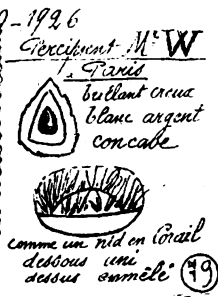 -1926
Percipient Mr W
Paris
brillant creux
blanc argent
concave
comme un nid en Corail
dessous uni
dessus emmêlé
79